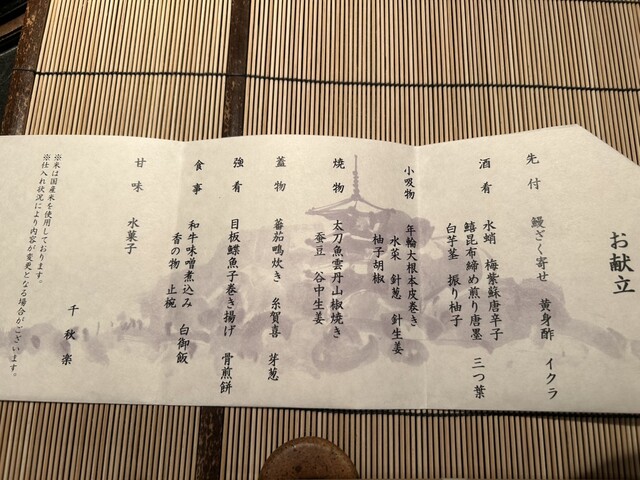 お献立
先付　鰻ざく寄せ　黄身酢　イクラ
酒肴　水蛸　梅紫蘇唐辛子
鱚昆布締め煎り唐墨　三つ葉
白芋茎　振り柚子
小吸物　年輪大根本皮巻き
水菜　針葱　針生姜
柚子胡椒
焼物　太刀魚雲丹山椒焼き
蚕豆　谷中生姜
蓋物　蕃茄鳴炊き　糸賀喜　芽葱
強肴　目板鰈魚子巻き揚げ　骨煎餅
食事　和牛味噌煮込み　白御飯
香の物　止椀
甘味　水菓子
千秋楽
※米は国産米を使用しております。
※仕入れ状況により内容が変更となる場合がございます。